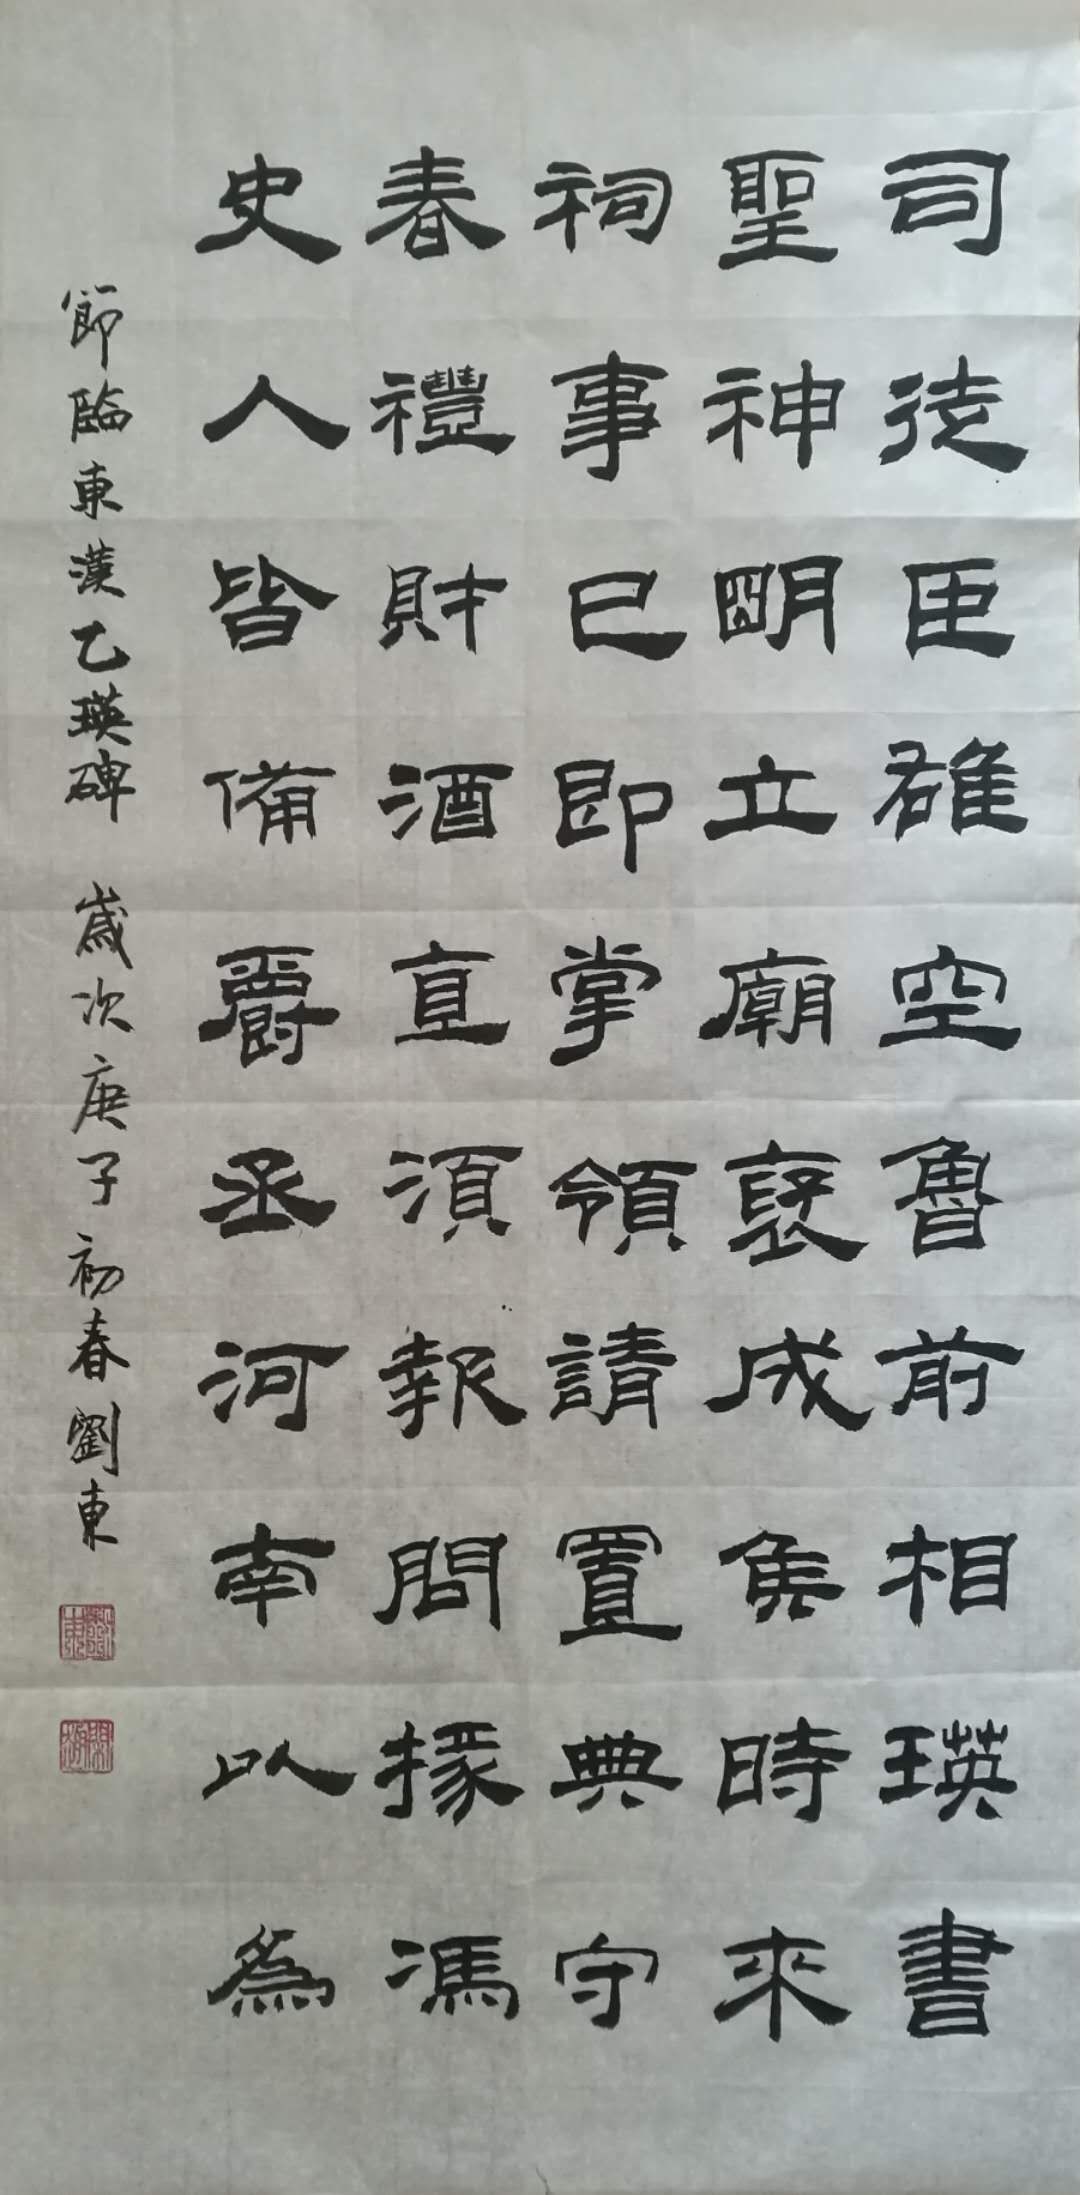 司徒臣雄空魯前相瑛書
聖神明立廟褒成侯時來
祠事已即掌領請置典守
春禮財酒直須報問掾馮
史人皆備爵丞河南以為
節臨東漢乙瑛碑 歲次庚子初春劉東
劉東